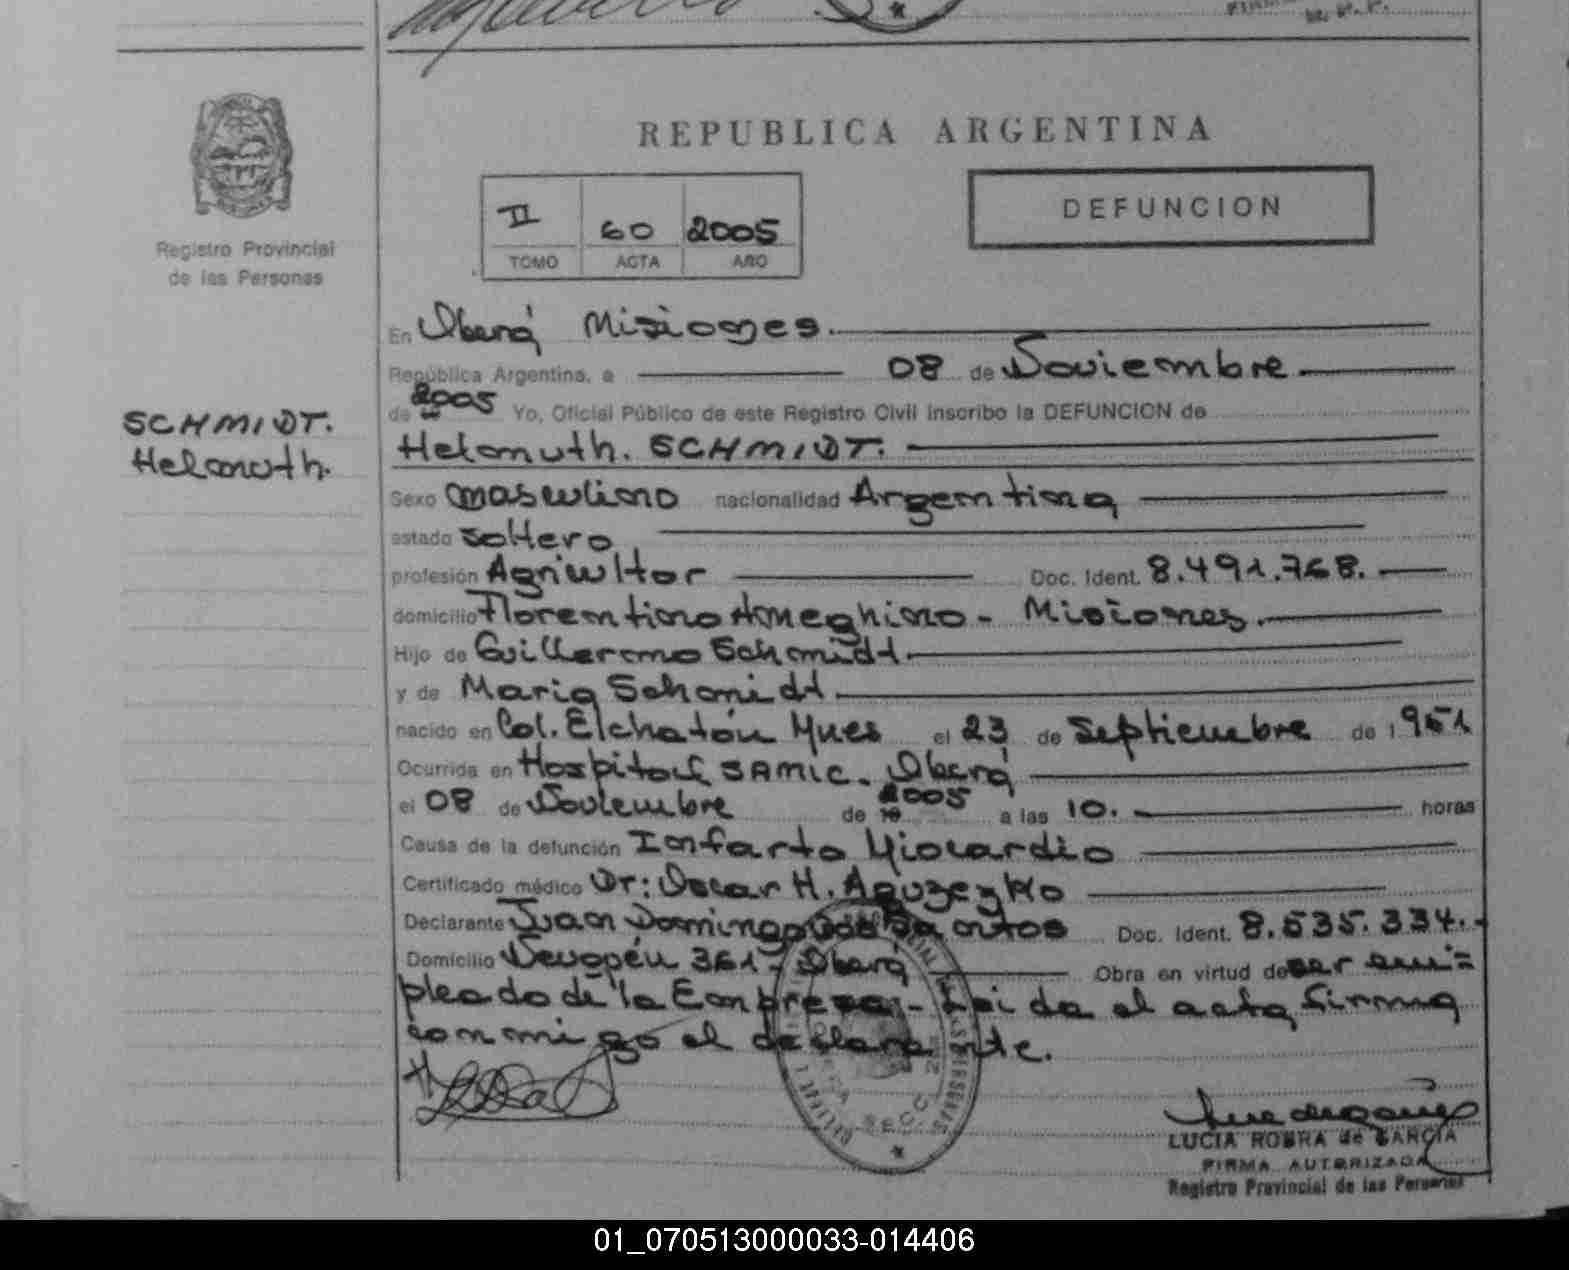 REPUBLICA ARGENTINA
DEFUNCION
II 60 2005
TOMO ACTA AÑO
Registro Provincial
de las Personas
SCHMIDT.
Helmuth.
En Oberá Misiones.
República Argentina, a 08 de Noviembre
de 2005 Yo, Oficial Público de este Registro Civil inscribo la DEFUNCION de
Helmuth. SCHMIDT.
Sexo masculino nacionalidad Argentina
estado soltero
profesión Agricultor Doc. Ident. 8.491.768.
domicilio Florentino Ameghino - Misiones.
Hijo de Guillermo Schmidt.
y de Maria Schmidt.
nacido en Col. Elchatón Yues el 23 de Septiembre de 1951
Ocurrida en Hospital SAMIC. Oberá
el 08 de Noviembre de 2005 a las 10. horas
Causa de la defunción Infarto Miocardio
Certificado médico Dr: Oscar H.
Declarante Juan Domingo Dos Santos Doc. Ident. 8.535.334.
Domicilio 361 - Oberá Obra en virtud de ser em=
pleado de la Empresa - Leida el acta firma
conmigo el declarante.
SECC.
LUCIA ROBRA de GARCIA
FIRMA AUTORIZADA
Registro Provincial de las Personas
01_070513000033-014406